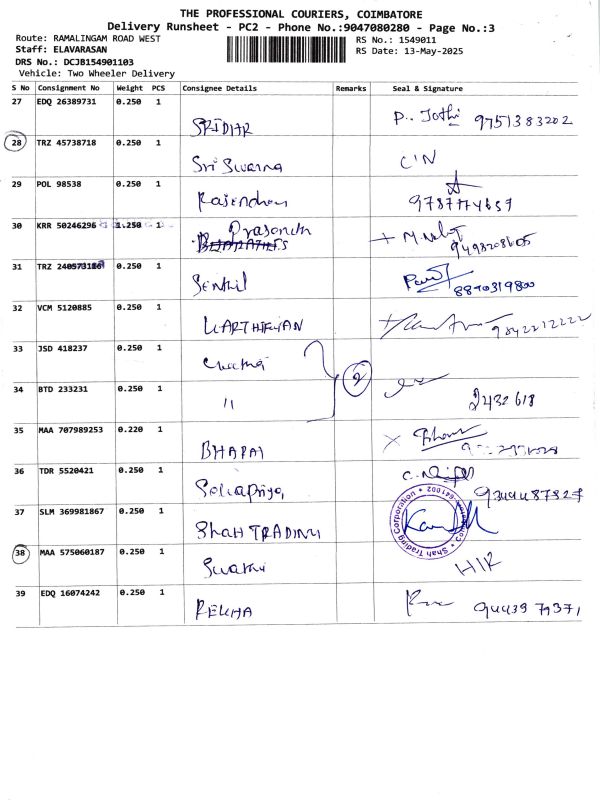 THE PROFESSIONAL COURIERS, COIMBATORE
Delivery Runsheet - PC2 - Phone No.:9047080280 - Page No.:3
Route: RAMALINGAM ROAD WEST RS No.: 1549011
Staff: ELAVARASAN RS Date: 13-May-2025
DRS No.: DCJB154901103
Vehicle: Two Wheeler Delivery
S No Consignment No Weight PCS Consignee Details Remarks Seal & Signature
27 EDQ 26389731 0.250 1
SRIDHAR P. Jothi 9751383202
28 TRZ 45738718 0.250 1
Sri Swarna C'N
29 POL 98538 0.250 1
Rajendran 9787774657
30 KRR 50246296 1.250
Prasanth
31 TRZ 0.250 1
Senthil 8870319800
32 VCM 5120885 0.250 1
KARTHIKEYAN 9842212222
33 JSD 418237 0.250 1
34 BTD 233231 0.250 1
2
11 2432618
35 MAA 707989253 0.220 1
BHARAT
36 TDR 5520421 0.250 1
Selvapriya 9344487327
37 SLM 369981867 0.250 1
Shah TRADING
Shah Trading Corporation
38 MAA 575060187 0.250 1
Swathi H/R
39 EDQ 16074242 0.250 1
REKHA 9443979371